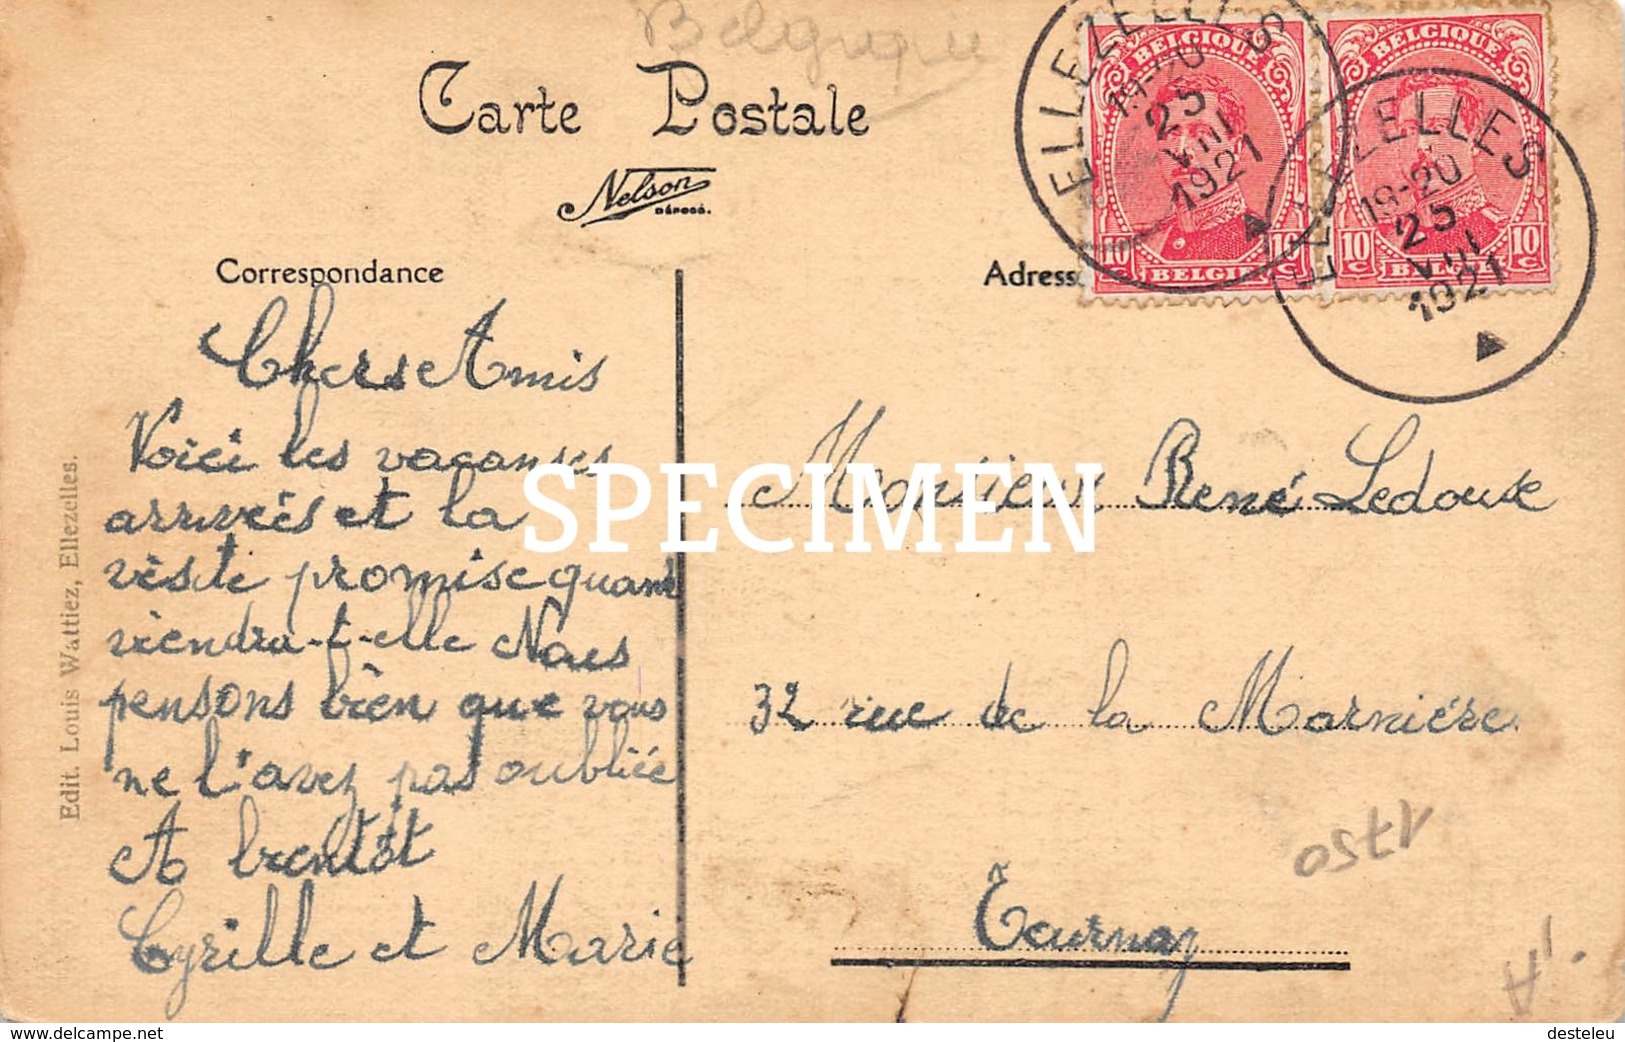 Belgique
Carte Postale
Nelson
DÉPOSÉ.
BELGIQUE
10 c 10 c
BELGIE
BELGIQUE
10 c 10 c
BELGIË
ELLEZELLES
19-20
25
VIII
1921
ELLEZELLES
19-20
25
VIII
1921
Correspondance
Adresse
Chers Amis
Voici les vacanses
arriveés et la
visite promise quand
viendra-t-elle Nous
pensons bien que vous
ne l'avez pas oubliée
A bientôt
Cyrille et Marie
Monsieur René Ledouse
32 rue de la Marnière
Tournay
1750
Edit. Louis Wattiez, Ellezelles.
SPECIMEN
www.delcampe.net
desteleu